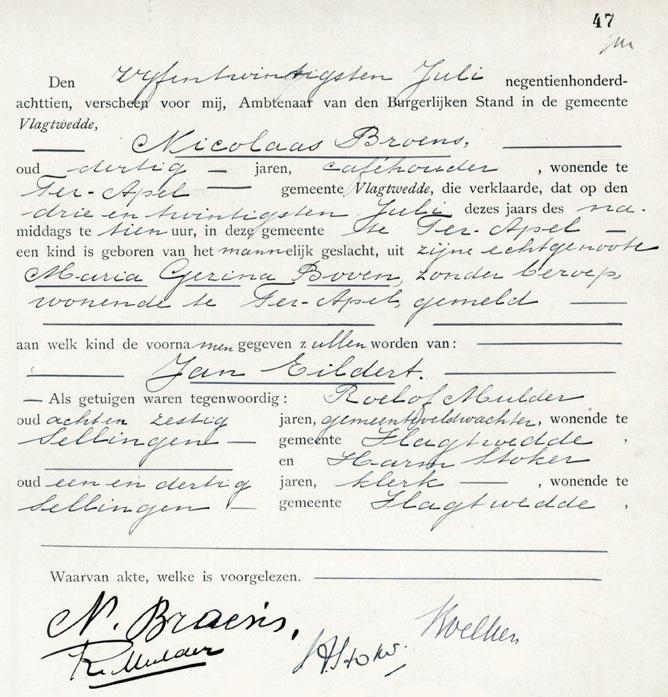 47
Den vyfentwintigsten Juli negentienhonderd-
achttien, verscheen voor mij, Ambtenaar van den Burgerlijken Stand in de gemeente
Vlagtwedde,
Nicolaas Broens,
oud dertig jaren, caféhouder, wonende te
Ter-Apel gemeente Vlagtwedde, die verklaarde, dat op den
drie en twintigsten Juli dezes jaars des na-
middags te tien uur, in deze gemeente te Ter-Apel
een kind is geboren van het mannelijk geslacht, uit zijne echtgenoote
Maria Gezina Boven, zonder beroep,
wonende te Ter-Apel, gemeld
aan welk kind de voornamen gegeven zullen worden van:
Jan Eildert.
— Als getuigen waren tegenwoordig: Roelof Mulder
oud acht en zestig jaren, gemeenteveldwachter, wonende te
Sellingen gemeente Vlagtwedde,
en Harm Stoker
oud een en dertig jaren, klerk, wonende te
Sellingen gemeente Vlagtwedde,
Waarvan akte, welke is voorgelezen.
N. Broens,
R. Mulder
H Stoker